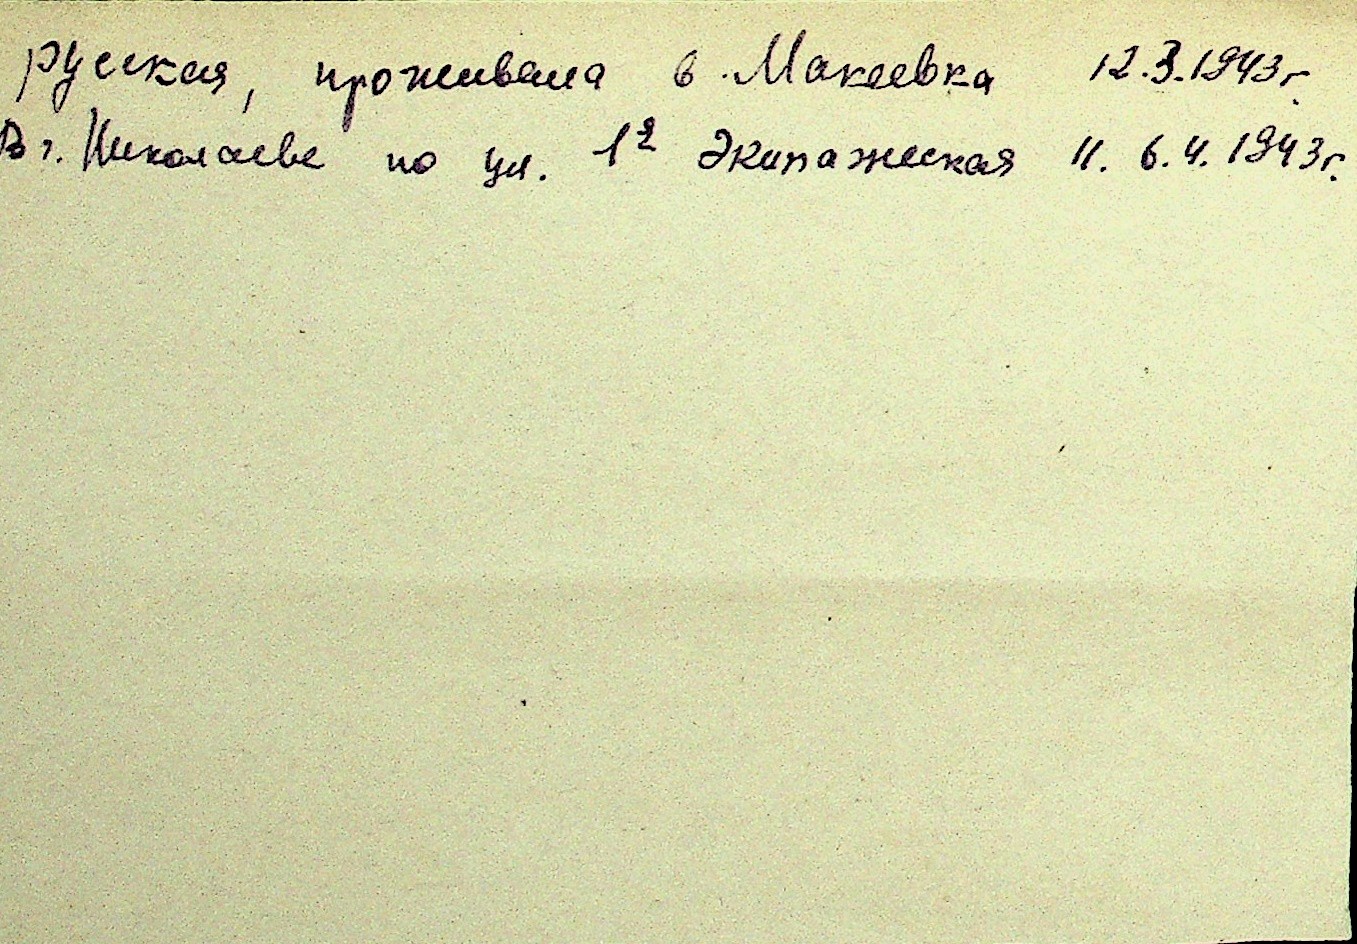 русская, проживала в Макеевка 12.3.1943г.
В г. Николаеве по ул. 1я Экипажеская 11. 6.4.1943г.